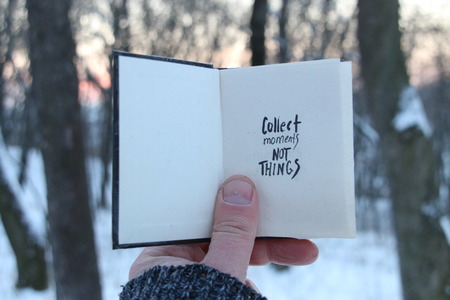 Collect
moments
NOT
THINGS